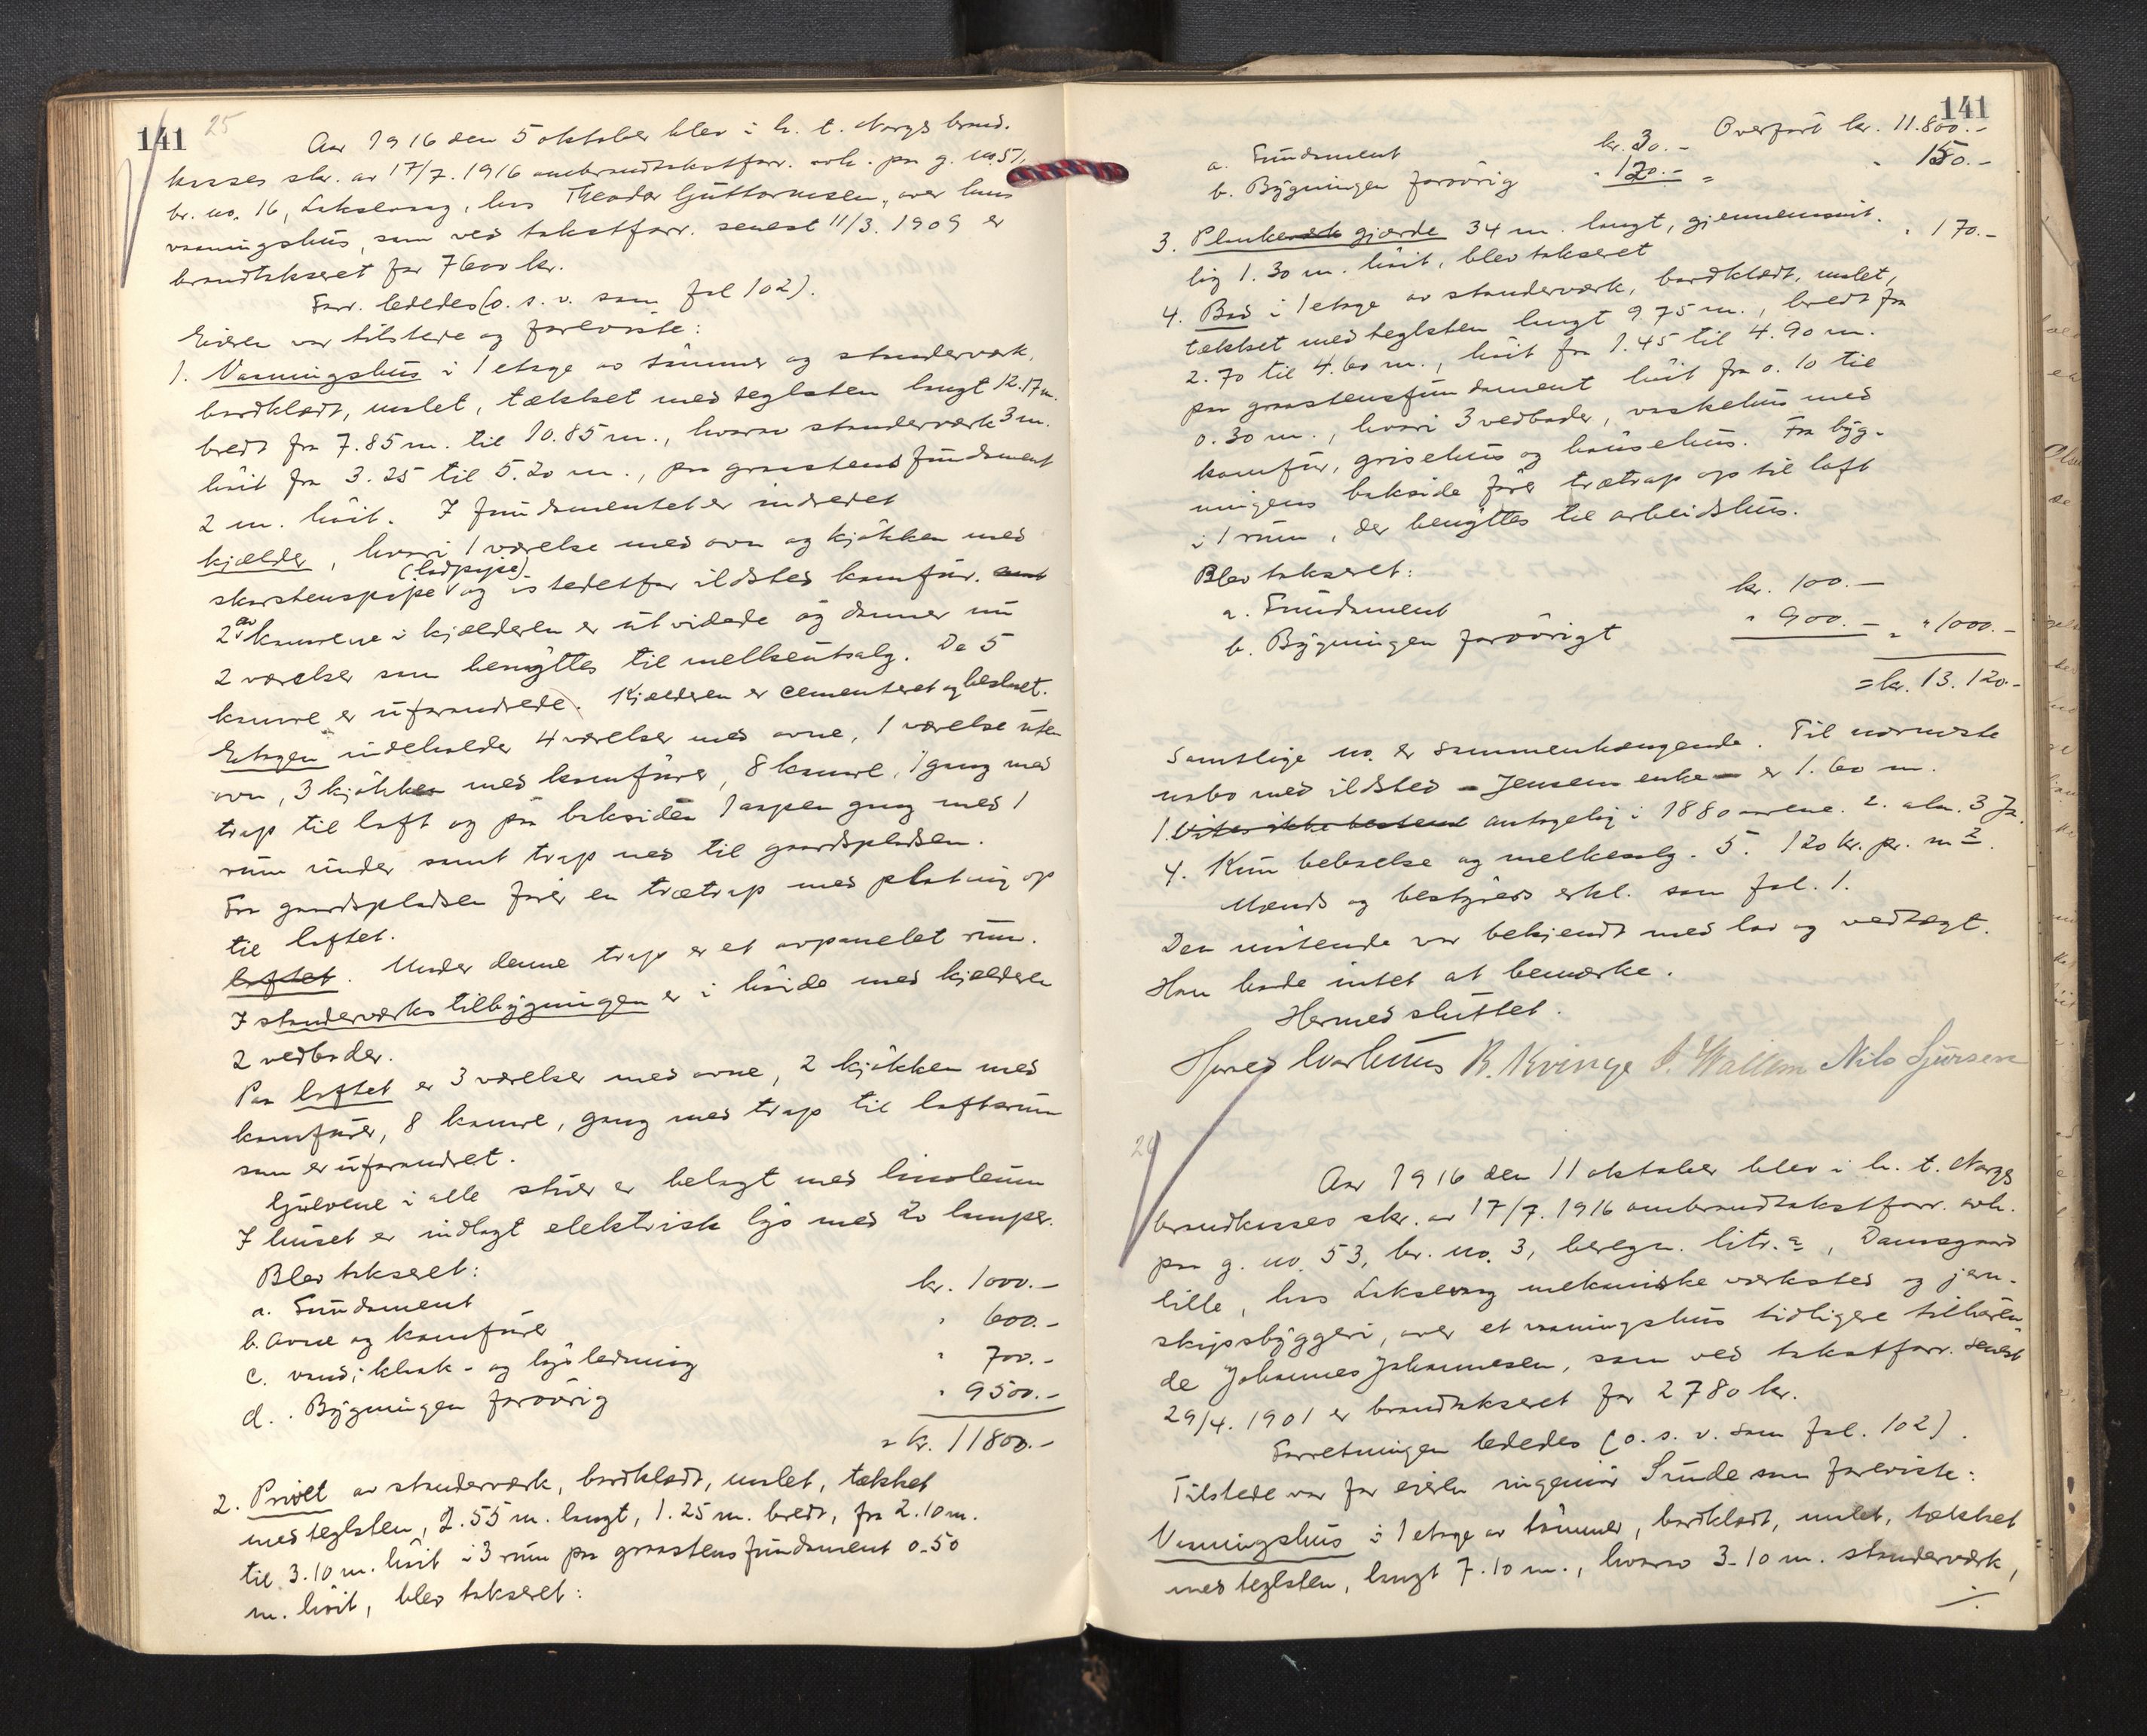 141 25
Aar 1916 den 5 oktober blev i h. t. Norges brand-
kasses skr. av 17/7. 1916 ombrandtakstforr. avh. paa g. no. 51,
br. no. 16, Laksevaag, hos Theodor Guttormsen, over hans
vaaningshus, som ved takstforr. senest 11/3. 1909 er
brandtakseret for 7600 kr.
Forr. lededes (o. s. v. som fol 102).
Eieren var tilstede og foreviste:
1. Vaaningshus i 1 etage av tömmer og stenderværk,
bordklædt, malet, tækket med teglsten langt 12.17 m.
bredt fra 7.85 m. til 10.85 m., hvorav stenderværk 3 m.
höit fra 3.25 til 5.20 m., paa graastensfundament
2 m. höit. I fundamentet er indredet
kjælder, hvori 1 værelse med ovn og kjökken med
skorstenspipe (lodpipe) og istedetfor ildsted komfür.
2 av kamrene i kjælderen er utvidede og danner nu
2 værelser som benyttes til melkeutsalg. De 5
kamre er uforandrede. Kjælderen er cementeret og beslaaet.
Etagen indeholder 4 værelser med ovne, 1 værelse uten
ovn, 3 kjökken med komfürer, 8 kamre, 1 gang med
trap til loft og paa baksiden 1 aapen gang med 1
rum under samt trap ned til gaardspladsen.
Fra gaardspladsen förer en trætrap med plating op
til loftet.
loftet. Under denne trap er et avpanelet rum.
I stenderværks tilbygningen er i höide med kjælderen
2 vedboder.
Paa loftet er 3 værelser med ovne, 2 kjökken med
komfürer, 8 kamre, gang med trap til loftsrum
som er uforandret.
Gulvene i alle stuer er belagt med linoleum
I huset er indlagt elektrisk lys med 20 lamper.
Blev takseret:
a. Fundament kr. 1000.-
b. Ovne og komfürer " 600.-
c. vand-, kloak- og lysledning " 700.-
d. Bygningen forövrig " 9500.-
= kr. 11800.-
2. Privet av stenderværk, bordklædt, malet, tækket
med teglsten, 2.55 m. langt, 1.25 m. bredt, fra 2.10 m.
til 3.10 m. höit i 3 rum paa graastensfundament 0.50
m. höit, blev takseret:
141
Overfört kr. 11.800.-
a. Fundament kr. 30.-
b. Bygningen forövrig " 120.- = " 150.-
3. Plankeværk gjærde 34 m. langt, gjennemsnit-
lig 1.30 m. höit, blev takseret " 170.-
4. Bod i 1 etage av stenderværk, bordklædt, malet,
tækket med teglsten langt 9.75 m., bredt fra
2.70 til 4.60 m., höit fra 1.45 til 4.90 m.
paa graastensfundament höit fra 0.10 til
0.30 m., hvori 3 vedboder, vaskehus med
komfür, grisehus og hönsehus. Fra byg-
ningens bakside förer trætrap op til loft
i 1 rum, der benyttes til arbeidshus.
Blev takseret:
a. Fundament kr. 100.-
b. Bygningen forövrigt " 900.- = " 1000.-
= kr. 13.120.-
Samtlige no. er sammenhængende. Til nærmeste
nabo med ildsted - Jensens enke - er 1.60 m.
1. Vites ikke bestemt antagelig i 1880 aarene. 2. alm. 3 Ja.
4. Kun beboelse og melkesalg. 5. 120 kr. pr. m2.
Mænds og bestyrers erkl. som fol. 1.
Den mötende var bekjendt med lov og vedtægt.
Han havde intet at bemærke.
Hermed sluttet.
B. Kvinge J. Wallem Nils Sjursen
Aar 1916 den 11 oktober blev i h. t. Norges
brandkasses skr. av 17/7. 1916 ombrandtakstforr. avh.
paa g. no. 53, br. no. 3, beregn. litr. a, Damsgaard
lille, hos Laksevaag mekaniske værksted og jern-
skipsbyggeri, over et vaaningshus tidligere tilhören-
de Johannes Johannesen, som ved takstforr. senest
29/4. 1901 er brandtakseret for 2780 kr.
Forretningen lededes (o. s. v. som fol. 102).
Tilstede var for eieren ingeniör Sunde som foreviste:
Vaaningshus i 1 etage av tömmer, bordklædt, malet, tækket
med teglsten, langt 7.10 m., hvorav 3.10 m. stenderværk,
./.